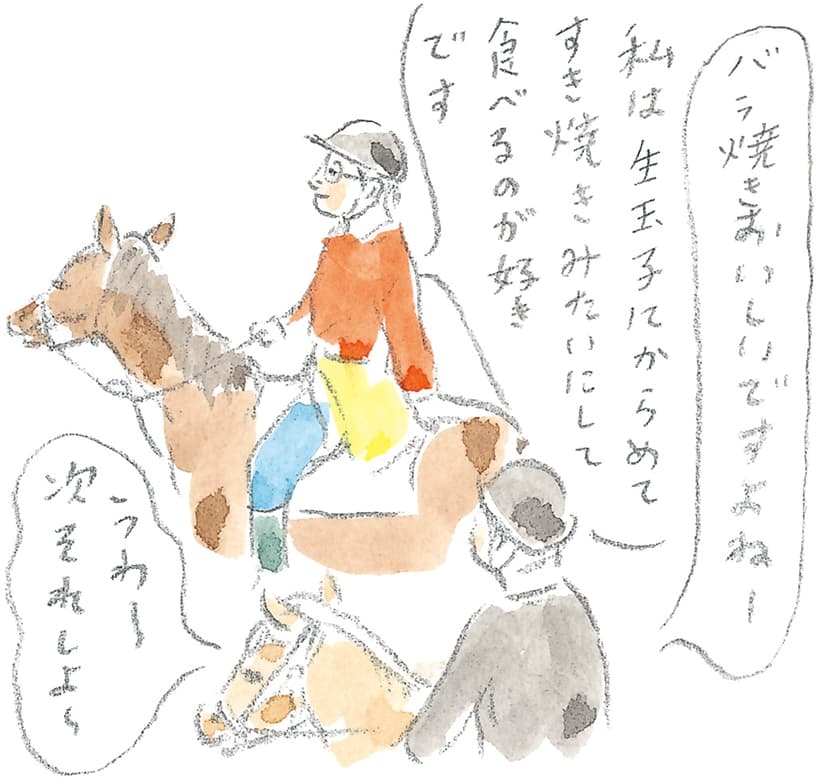 バラ焼きおいしいですよねー
私は生玉子にからめて
すき焼きみたいにして
食べるのが好き
です
うわー
次それしよ〜